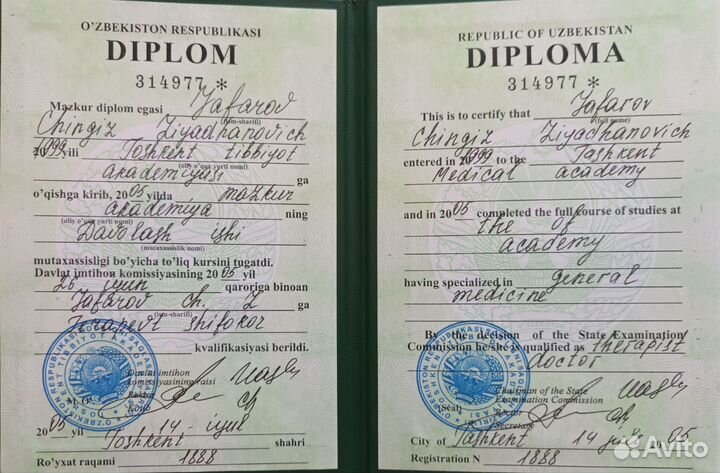 O'ZBEKISTON RESPUBLIKASI
DIPLOM
314977 *
Mazkur diplom egasi Jafarov
(ism-sharifi)
Chingiz Ziyadhanovich
1999 yili Toshkent tibbiyot
(oliy o'quv yurti nomi)
akademiyasi ga
o'qishga kirib, 2005 yilda mazkur
akademiya ning
(oliy o'quv yurti nomi)
Davolash ishi
(mutaxassislik nomi)
mutaxassisligi bo'yicha to'liq kursini tugatdi.
Davlat imtihon komissiyasining 2005 yil
26 iyun qaroriga binoan
Jafarov Ch. Z ga
(ism-sharifi)
Terapevt shifokor
kvalifikasiyasi berildi.
Davlat imtihon
komissiyasining raisi
Rektor
Kotib
M.O'.
2005 yil 14 - iyul
Toshkent shahri
Ro'yxat raqami 1888
REPUBLIC OF UZBEKISTAN
DIPLOMA
314977 *
This is to certify that Jafarov
(full name)
Chingiz Ziyadhanovich
entered in 1999 to the Tashkent
Medical academy
and in 2005 completed the full course of studies at
the of
academy
having specialized in general
medicine
By the decision of the State Examination
Commission he/she is qualified as therapist
doctor
Chairman of the State
Examination Commission
(Seal)
Rector
Secretary
City of Tashkent 14 july 2005
Registration N 1888
Avito